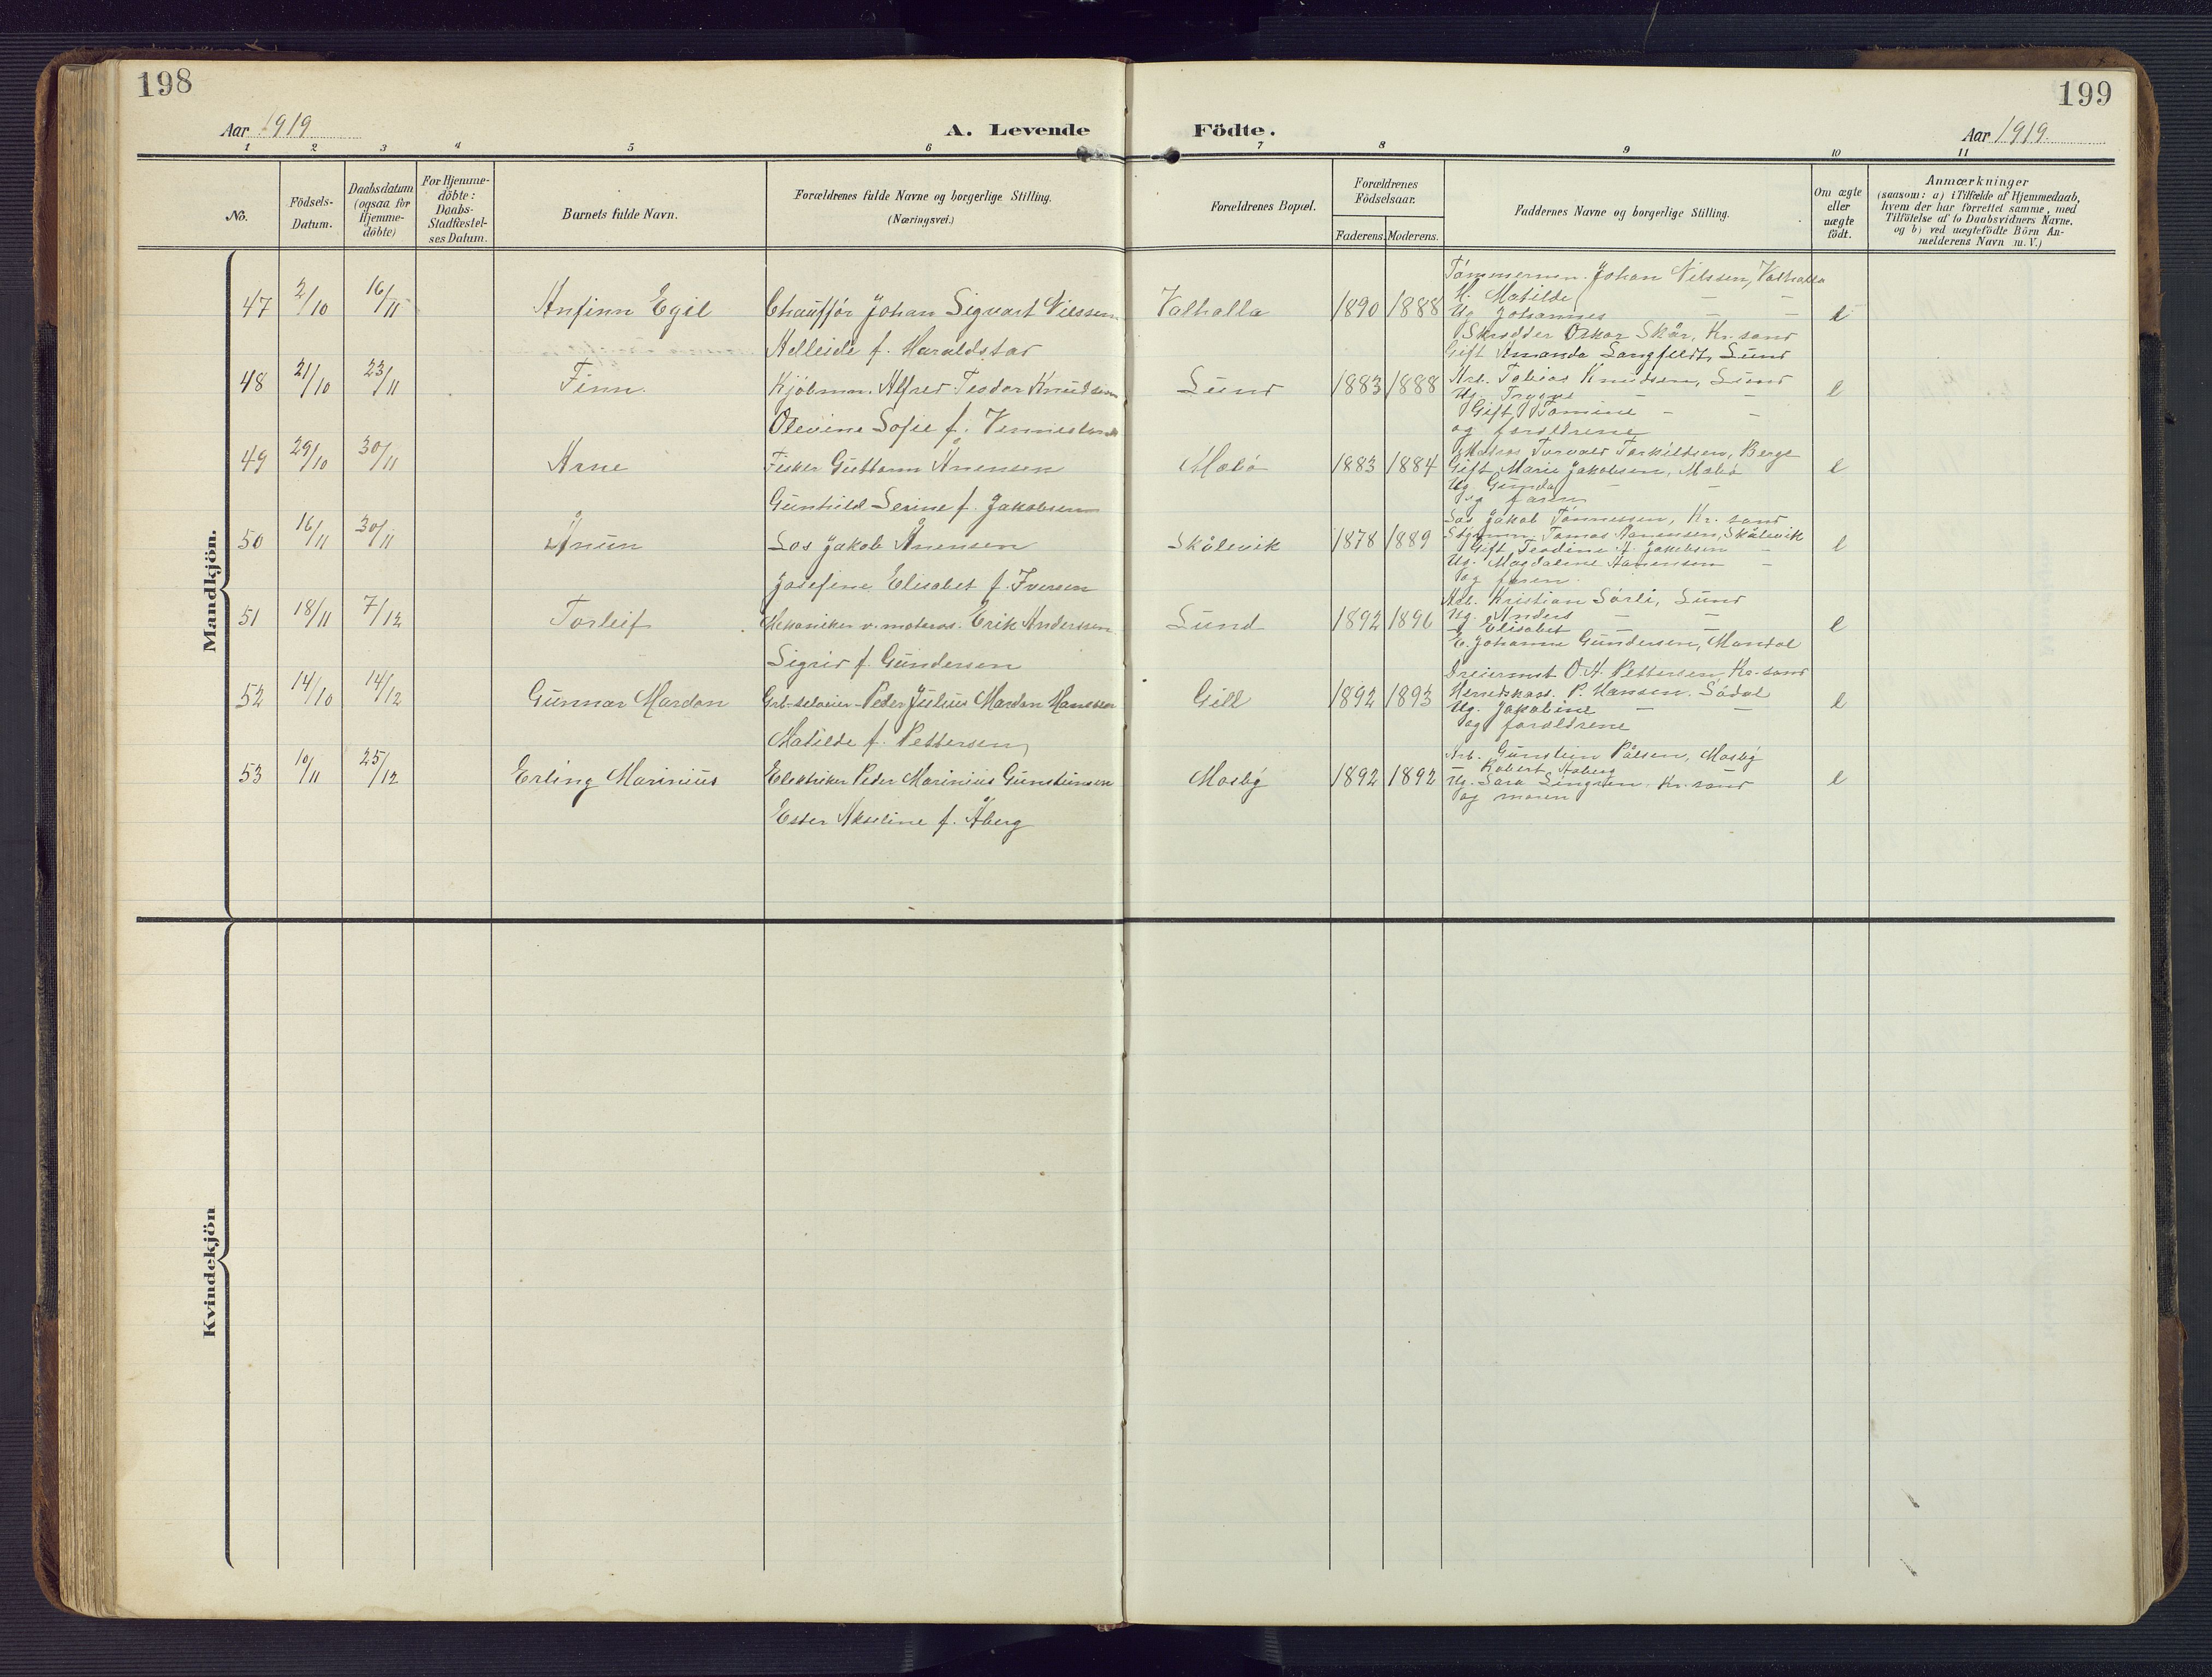 198
199
Aar 1919
A. Levende
Födte.
Aar 1919.
1 2 3 4 5 6 7 8 9 10 11
No.
Födsels-
Datum.
Daabsdatum
(ogsaa for
Hjemme-
döbte)
For Hjemme-
döbte:
Daabs-
Stadfæstel-
ses Datum.
Barnets fulde Navn.
Forældrenes fulde Navne og borgerlige Stilling.
(Næringsvei.)
Forældrenes Bopæl.
Forældrenes
Födselsaar.
Faderens. Moderens.
Faddernes Navne og borgerlige Stilling.
Om ægte
eller
uægte
födt.
Anmærkninger
(saasom: a) i Tilfælde af Hjemmedaab,
hvem der har forrettet samme, med
Tilföielse af to Daabsvidners Navne.
og b) ved uægtefödte Börn An-
melderens Navn m. V.)
Mandkjön.
47 2/10 16/11 Anfinn Egil
Chauffør Johan Sigvart Nilssen
Helleide f. Haraldstad
Valhalla 1890 1888
Tømmermn. Johan Nilssen, Valhalla
H. Matilde — —
Ug. Johannes — —
Skrædder Oskar Skår, Kr.sand
Gift Amanda Langfeldt, Lund
e
48 21/10 23/11 Finn.
Kjöbmn. Alfred Teodor Knudsen
Olevine Sofie f. Vennesland
Lund 1883 1888
Arb. Tobias Knudsen, Lund
Ug. Trygve — —
Gift Tomine — —
og forældrene
e
49 29/10 30/11 Arne
Fisker Guttorm Ånensen
Gunhild Serine f. Jakobsen
Mæbö 1883 1884
Matros Torvald Torkildsen, Berge
Gift Marie Jakobsen, Mæbö
Ug. Gunda — —
og faren
e
50 16/11 30/11 Ånun
Los Jakob Ånensen
Josefine Elisabet f. Iversen
Skålevik 1878 1889
Los Jakob Tönnessen, Kr. sand
Tomas Aanensen, Skålevik
Gift Teodine A. Jakobsen —
Ug. Magdalene Aanensen —
og faren.
e
51 18/11 7/12 Torleif
Mekaniker v. motoros. Erik Anderssen
Sigrid f. Gundersen
Lund 1892 1896
Arb. Kristian Sörli, Lund
Ug. Anders — —
Elisabet — —
E. Johanne Gundersen, Mandal
e
52 14/10 14/12 Gunnar Mardon
Peder Julius Mardon Hanssen
Matilde f. Pettersen
Gill 1892 1893
Dreiermst O. A. Pettersen, Kr.sand
Herredskass. P. Hansen. Södal
Ug. Jakobine — —
og forældrene
e
53 10/11 25/12 Erling Marinius
Elektriker Peder Marinius Gunsteinsen
Ester Akseline f. Åberg
Mosby 1892 1892
Arb. Gunstein Pålsen, Mosby
— Robert Aaberg
Ug. Sara Lingreen. Kr. sand
og moren
e
Kvindekjön